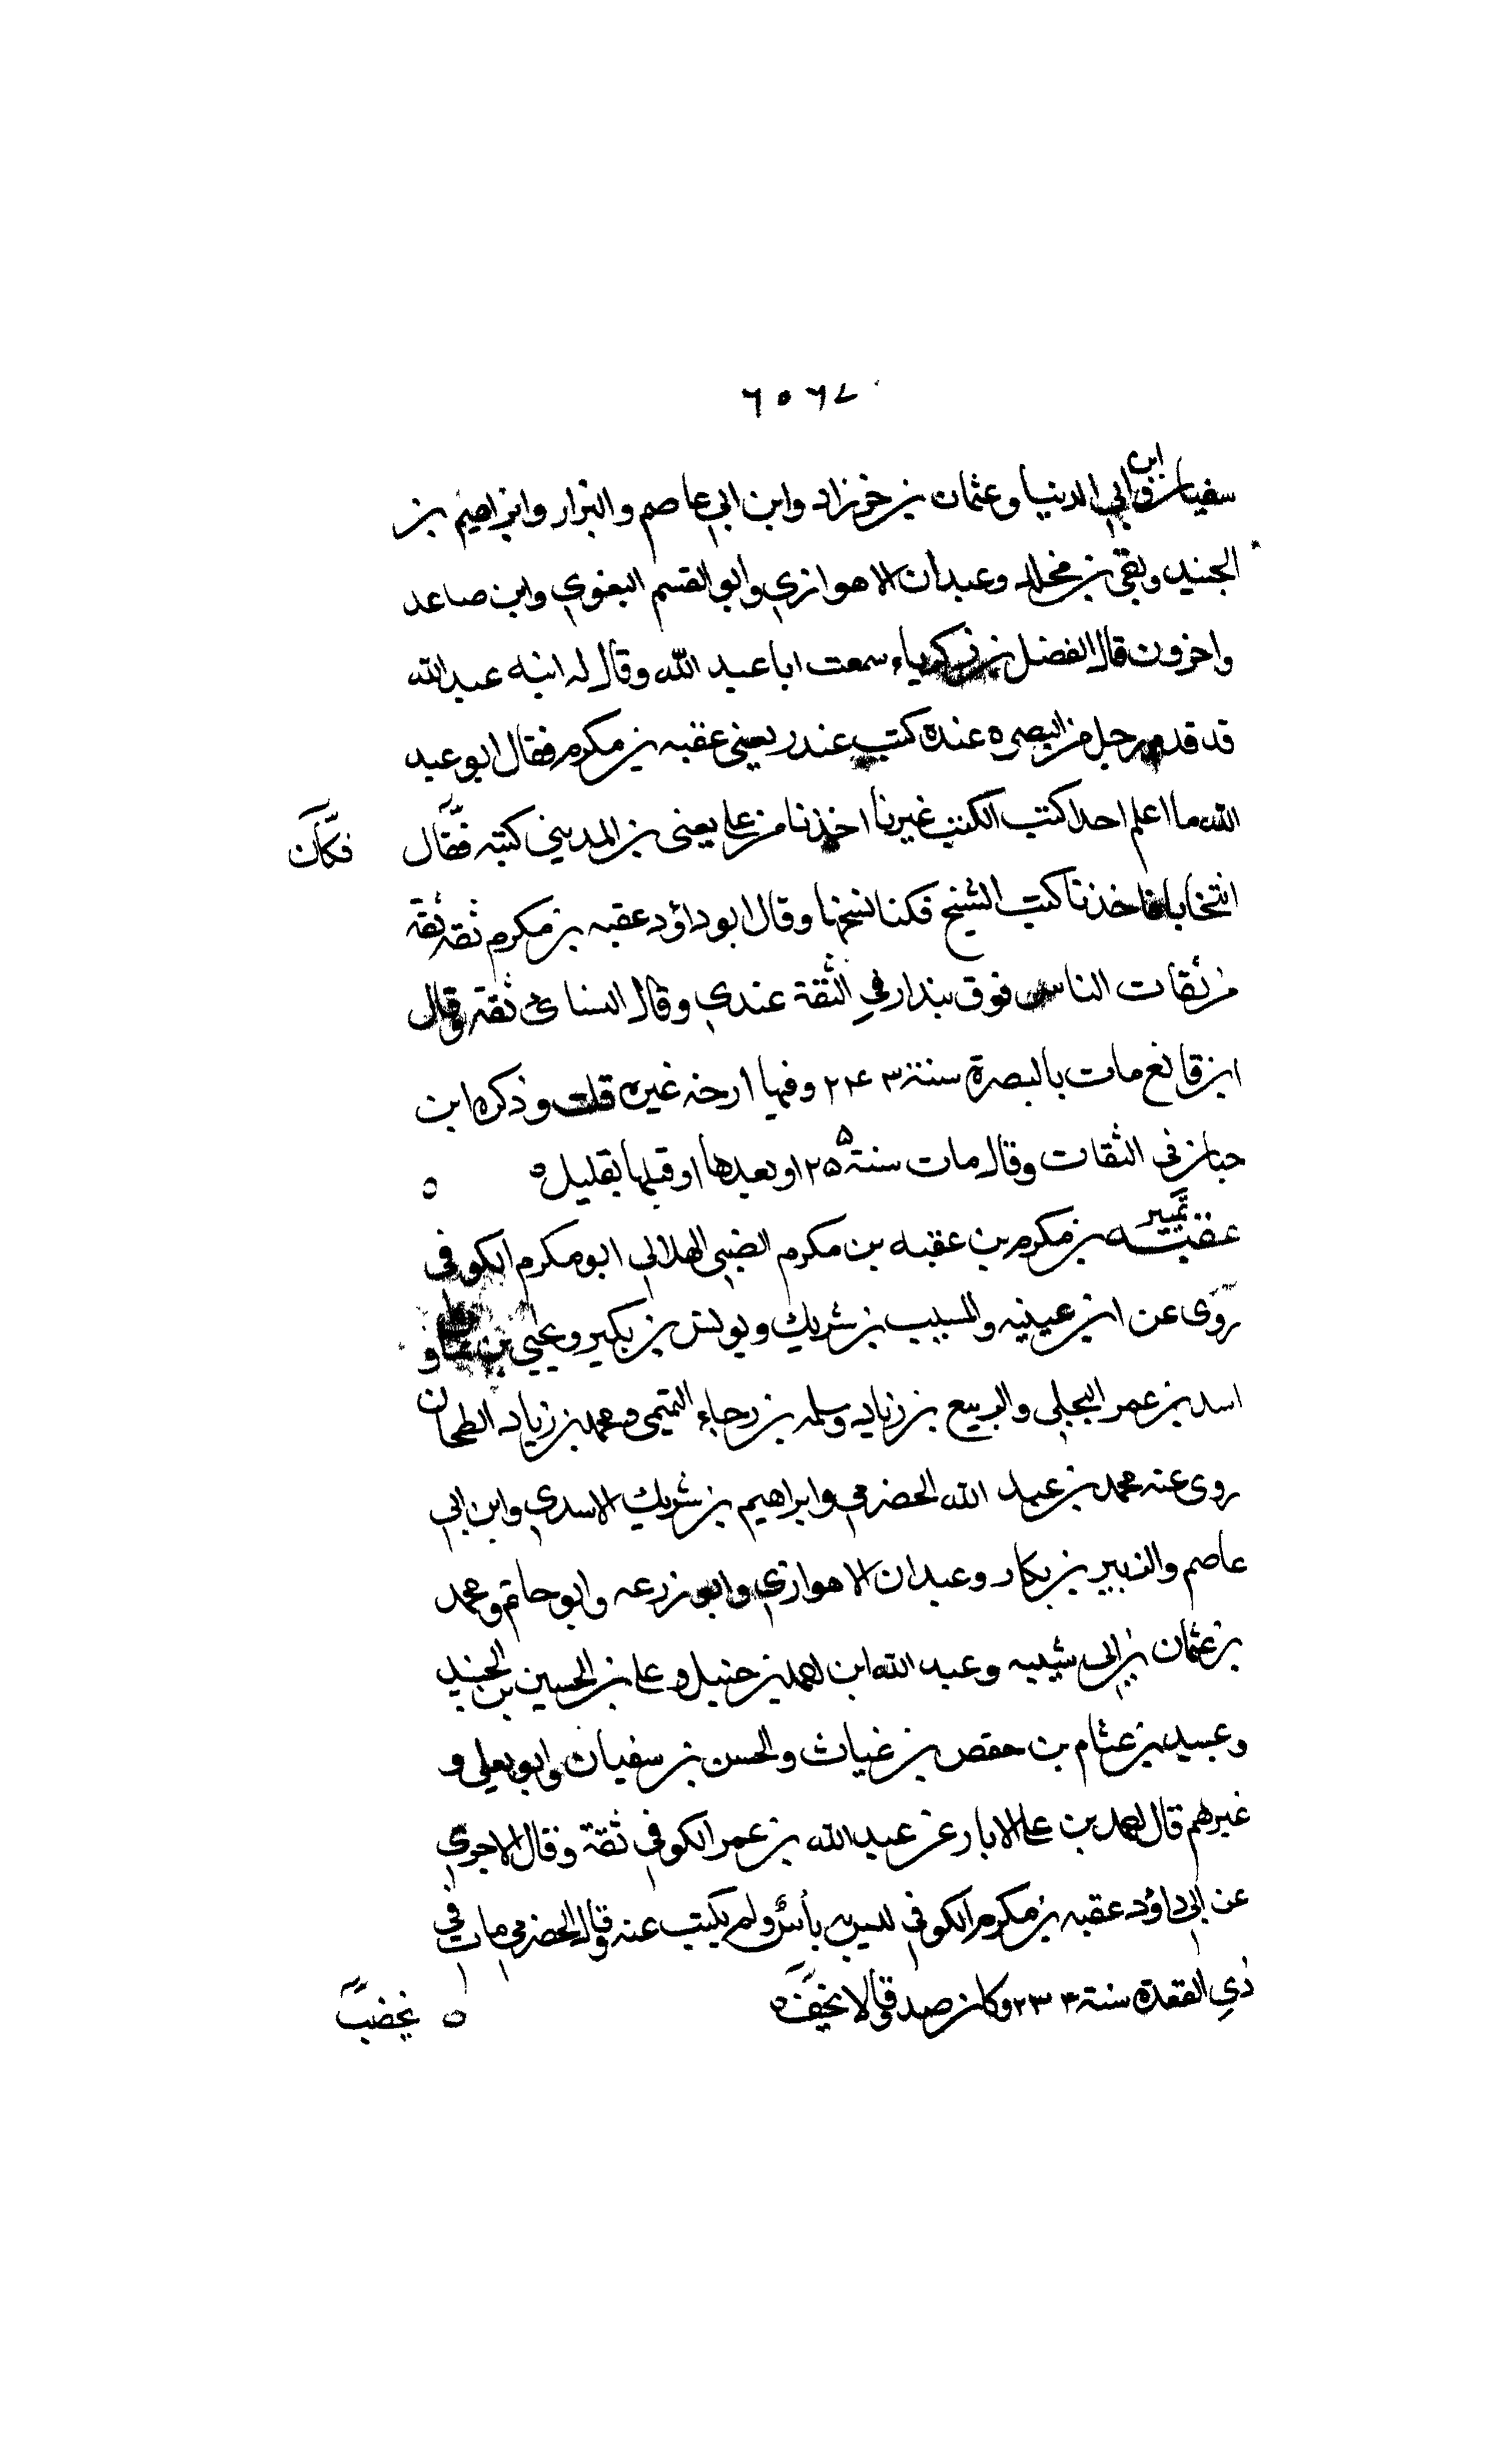 سفيان وابن ابي الدنيا وعثمان بن خرزاد وابن ابي عاصم والبزار وابراهيم بن
الجنيد وبقي بن مخلد وعبدان الاهوازي وابو القسم البغوي وابن صاعد
واخرون قال الفضل بن زكرياء سمعت ابا عبد الله وقال له ابنه عبد الله
قد قدم رجل من البصره عنده كتب غندر يعني عقبه بن مكرم فقال ابو عبد
الله ما اعلم احدا كتب الكتب غيرنا اخذنا من علي يعني بن المديني كتبه فقال فكان
انتخابا فاخذنا كتب الشيخ فكنا ننسخها وقال ابو داؤد عقبه بن مكرم ثقه ثقة
من ثقات الناس فوق بندار في الثقة عندي وقال النسائي ثقة وقال
ابن قانع مات بالبصرة سنة ۲۴۳ وفيها ارخه غيره قلت وذكره ابن
حبان في الثقات وقال مات سنة ۲۵۵ او بعدها او قبلها بقليل ه ه
تمييز
عقبة بن مكرم بن عقبه بن مكرم الضبي الهلالي ابو مكرم الكوفي
روى عن ابن عيينه والمسيب بن شريك ويونس بن بكير ويحيى بن و
اسد بن عمر البجلي والربيع بن زياد وسلمه بن رجاء التميمي ومحمد بن زياد الطحان
روى عنه محمد بن عبد الله الحضرمي وابراهيم بن شريك الاسدي وابن ابي
عاصم والزبير بن بكار وعبدان الاهوازي وابو زرعه وابو حاتم ومحمد
بن عثمان بن ابي شيبه وعبد الله ابن احمد بن حنبل وعلي بن الحسين بن الجنيد
وعبيد بن عثام بن حفص بن غياث والحسن بن سفيان وابو يعلى و
غيرهم قال احمد بن علي الابار عن عبد الله بن عمر الكوفي ثقة وقال الاجري
عن ابي داؤد عقبه بن مكرم الكوفي ليس به بأس ولم يكتب عنه وقال الحضرمي مات في
ذي القعدة سنة ۲۳۴ وكان صدوقا لا يخضب ه يخضب